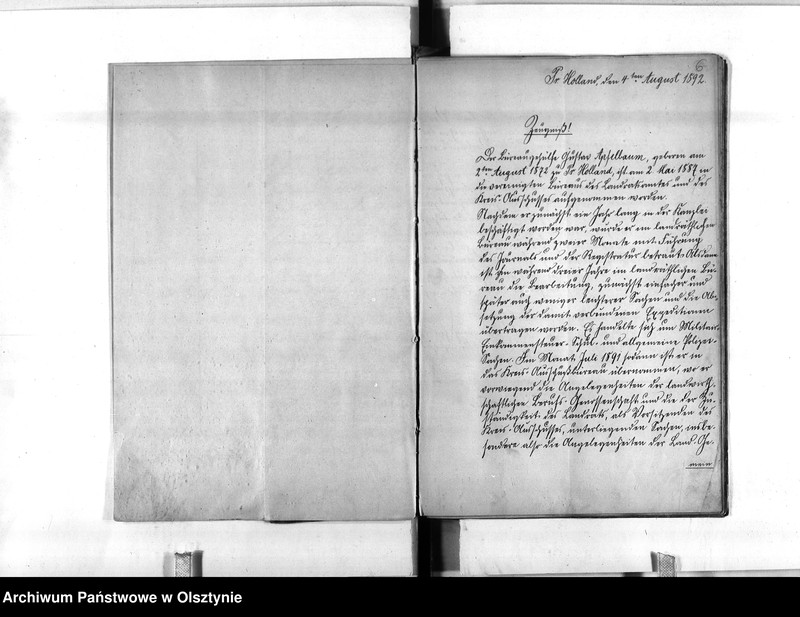 6
Pr Holland, den 4ten August 1892
Zeugniß!
Der Büreaugehülfe Gustav Apfelbaum, geboren am
2ten August 1872 zu Pr Holland, ist am 2. Mai 1887 in
die vereinigten Büreaus des Landrathsamtes und des
Kreis-Ausschusses aufgenommen worden.
Nachdem er zunächst ein Jahr lang in der Kanzlei
beschäftigt worden war, wurde er im landräthlichen
Büreau während zweier Monate mit Führung
des Journals und der Registratur betraut. Alsdann
ist ihm während dreier Jahre im landräthlichen Bü-
reau die Bearbeitung, zunächst einfacher und
später auch weniger leichterer Sachen und die Ab-
setzung der damit verbundenen Expeditionen
übertragen worden. Es handelte sich um Militair-
Einkommensteuer- Schul- und allgemeine Polizei-
Sachen. Im Monat Juli 1891 sodann ist er in
das Kreis-Ausschußbüreau übernommen, wo er
vorwiegend die Angelegenheiten der landwirth-
schaftlichen Berufs-Genossenschaft und die der Zu-
ständigkeit des Landraths, als Vorsitzenden des
Kreis-Ausschusses, unterliegenden Sachen, insbe-
sondere also die Angelegenheiten der Land-Ge-
mein
Archiwum Państwowe w Olsztynie